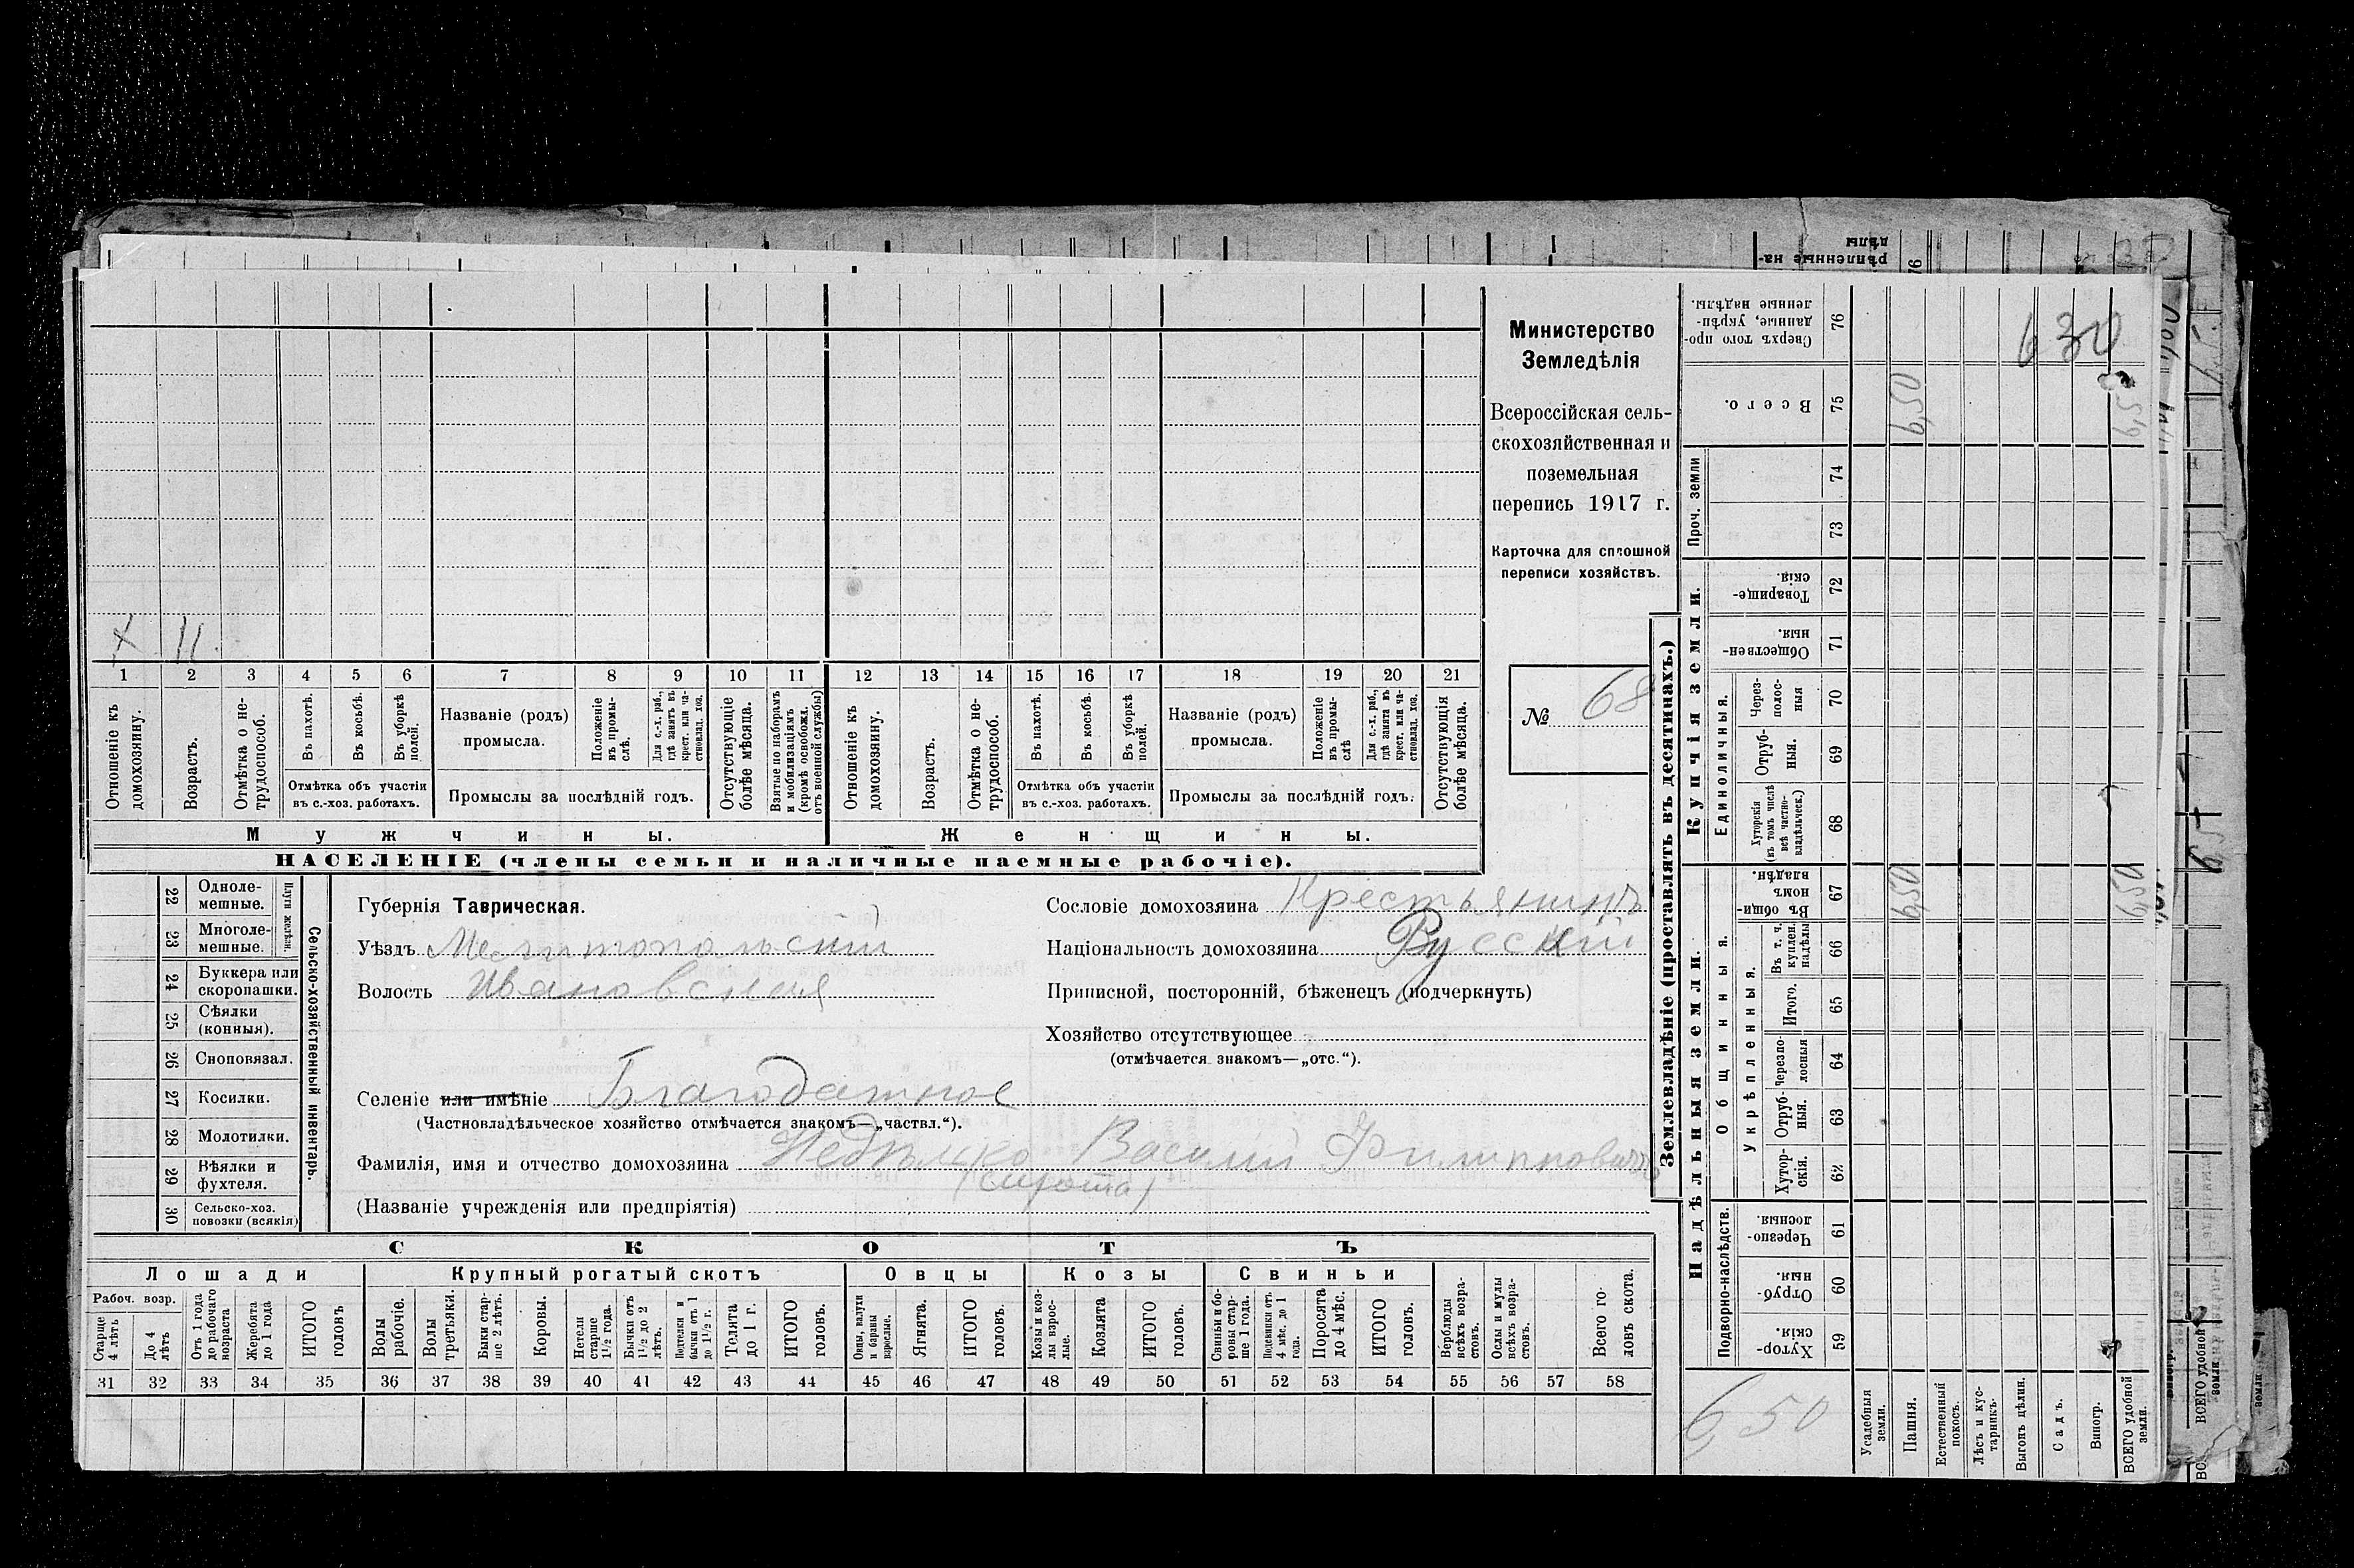 Министерство
Земледѣлія
Всероссійская сель-
скохозяйственная и
поземельная
перепись 1917 г.
Карточка для сплошной
переписи хозяйствъ.
№ 68
X 11
1 2 3 4 5 6 7 8 9 10 11 12 13 14 15 16 17 18 19 20 21
Отношеніе къ домохозяину.
Возрастъ.
Отмѣтка о не-трудоспособ.
Въ пахотѣ.
Въ косьбѣ.
Въ уборкѣ полей.
Отмѣтка объ участіи
въ с.-хоз. работахъ.
Названіе (родъ)
промысла.
Положеніе въ промы-слѣ.
Для с.-х. раб., гдѣ занятъ въ крест. или ча-стновлад. хоз.
Промыслы за послѣдній годъ.
Отсутствующіе болѣе мѣсяца.
Взятые по наборамъ и мобилизаціямъ (кромѣ освобожд. отъ военной службы)
Отношеніе къ домохозяину.
Возрастъ.
Отмѣтка о не-трудоспособ.
Въ пахотѣ.
Въ косьбѣ.
Въ уборкѣ полей.
Отмѣтка объ участіи
въ с.-хоз. работахъ.
Названіе (родъ)
промысла.
Положеніе въ промы-слѣ
Для с.-х. раб., гдѣ занята въ крест. или ча-стновлад. хоз.
Промыслы за послѣдній годъ.
Отсутствующія болѣе мѣсяца.
Мужчины.
Женщины.
НАСЕЛЕНІЕ (члены семьи и наличные наемные рабочіе).
22 Одноле-мешные.
23 Многоле-мешные.
Плуги желѣзн.
24 Буккера или скоропашки.
25 Сѣялки (конныя).
26 Сноповязал.
27 Косилки.
28 Молотилки.
29 Вѣялки и фухтеля.
30 Сельско-хоз. повозки (всякія)
Сельско-хозяйственный инвентарь.
Губернія Таврическая.
Уѣздъ Мелитопольскій
Волость Ивановская
Селеніе или имѣніе Благодатное
(Частновладѣльческое хозяйство отмѣчается знакомъ—„частвл.“).
Фамилія, имя и отчество домохозяина Недѣлько Василій Филипповичъ
(сирота)
(Названіе учрежденія или предпріятія)
Сословіе домохозяина Крестьянинъ
Національность домохозяина Русскій
Приписной, посторонній, бѣженецъ (подчеркнуть)
Хозяйство отсутствующее
(отмѣчается знакомъ—„отс.“).
СКОТЪ
Лошади
Крупный рогатый скотъ
Овцы
Козы
Свиньи
Рабоч. возр.
Старше 4 лѣтъ
До 4 лѣтъ
Отъ 1 года до рабочаго возраста
Жеребята до 1 года
ИТОГО головъ
Волы рабочіе.
Волы третьяки.
Быки стар-ше 2 лѣтъ.
Коровы.
Нетели старше 1½ года.
Бычки отъ 1½ до 2 лѣтъ.
Подтелки и бычки отъ 1 до 1½ г.
Телята до 1 г.
ИТОГО головъ.
Овцы, валухи и бараны взрослые.
Ягнята.
ИТОГО головъ.
Козы и коз-лы взрос-лые.
Козлята
ИТОГО головъ.
Свиньи и бо-ровы стар-ше 1 года.
Подсвинки отъ 4 мѣс. до 1 года.
Поросята до 4 мѣс.
ИТОГО головъ.
Верблюды всѣхъ возра-стовъ.
Ослы и мулы всѣхъ возра-стовъ.
Всего го-ловъ скота.
31 32 33 34 35 36 37 38 39 40 41 42 43 44 45 46 47 48 49 50 51 52 53 54 55 56 57 58
Землевладѣніе (проставлять въ десятинахъ.)
Купчія земли.
Надѣльныя земли.
Проч. земли
Единоличныя.
Общинныя.
Укрѣпленныя.
Подворно-наслѣдств.
Сверхъ того про-данные, укрѣп-ленные надѣлы. 76
630
Всего. 75 6,50 6,50
74
73
Товарище-скія. 72
Обществен-ныя. 71
Через-полос-ныя 70
Отруб-ныя. 69
Хуторскія (въ томъ числѣ всѣ частно-владѣльческ.) 68
Въ общи-номъ владѣн. 67 6,50 6,50
Въ т. ч. куплен. надѣлы 66
Итого. 65
Черезпо-лосныя 64
Отруб-ныя. 63
Хутор-скія. 62
Черезпо-лосныя. 61
Отруб-ныя. 60
Хутор-скія. 59
6,50
Усадебныя земли.
Пашня.
Естественный покосъ.
Лѣсъ и кус-тарникъ.
Выгонъ цѣлин.
Садъ.
Виногр.
ВСЕГО удобной земли.
ВСЕГО удобной земли